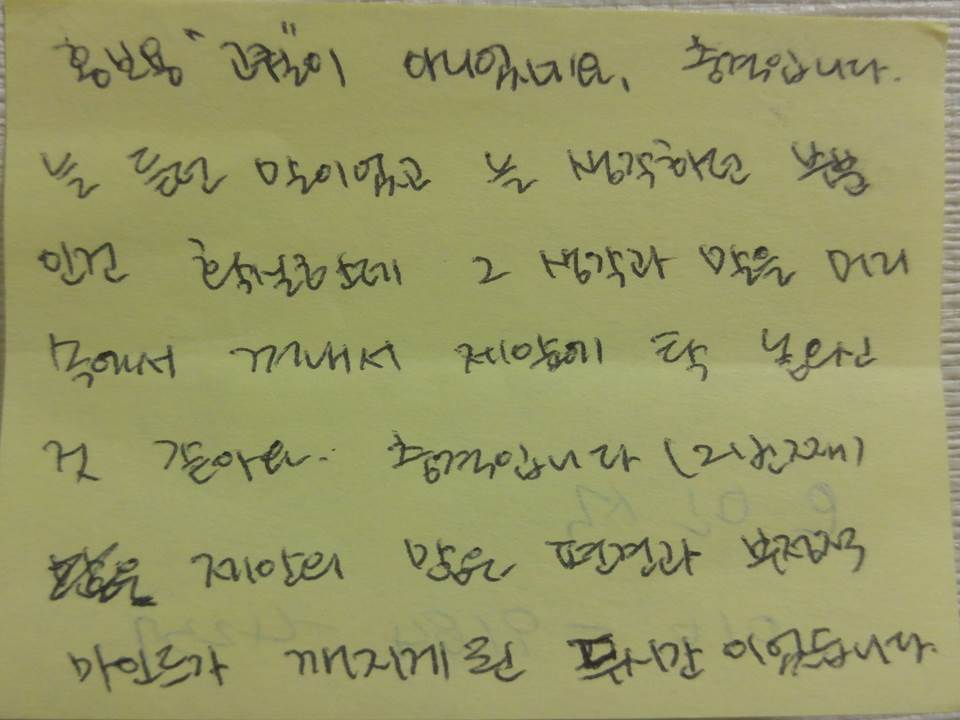 홍보용 "군중"이 아니었네요, 충격입니다.
늘 듣던 말이었고 늘 생각하던 부분
인건 확실한데 그 생각과 말을 머리
속에서 꺼내서 제 앞에 탁 놓으신
것 같아요. 충격입니다 (2번째)
제 안의 많은 편견과 부정적
마인드가 깨지게 된 시간 이었습니다.